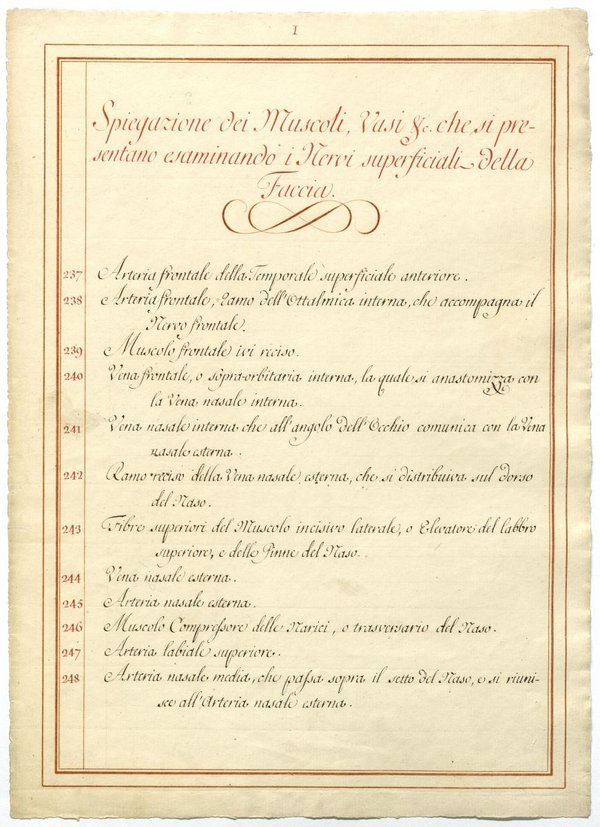 1
Spiegazione dei Muscoli, Vasi &c. che si pre-
sentano esaminando i Nervi superficiali della
Faccia.
237 Arteria frontale della Temporale superficiale anteriore.
238 Arteria frontale, Ramo dell'Ottalmica interna, che accompagna il
Nervo frontale.
239 Muscolo frontale ivi reciso.
240 Vena frontale, o sopra-orbitaria interna, la quale si anastomizza con
la Vena nasale interna.
241 Vena nasale interna che all'angolo dell'Occhio comunica con la Vena
nasale esterna.
242 Ramo reciso della Vena nasale esterna, che si distribuiva sul dorso
del Naso.
243 Fibre superiori del Muscolo incisivo laterale, o Elevatore del labbro
superiore, e delle Pinne del Naso.
244 Vena nasale esterna.
245 Arteria nasale esterna.
246 Muscolo Compressore delle Narici, o trasversario del Naso.
247 Arteria labiale superiore.
248 Arteria nasale media, che passa sopra il setto del Naso, e si riuni-
sce all'Arteria nasale esterna.